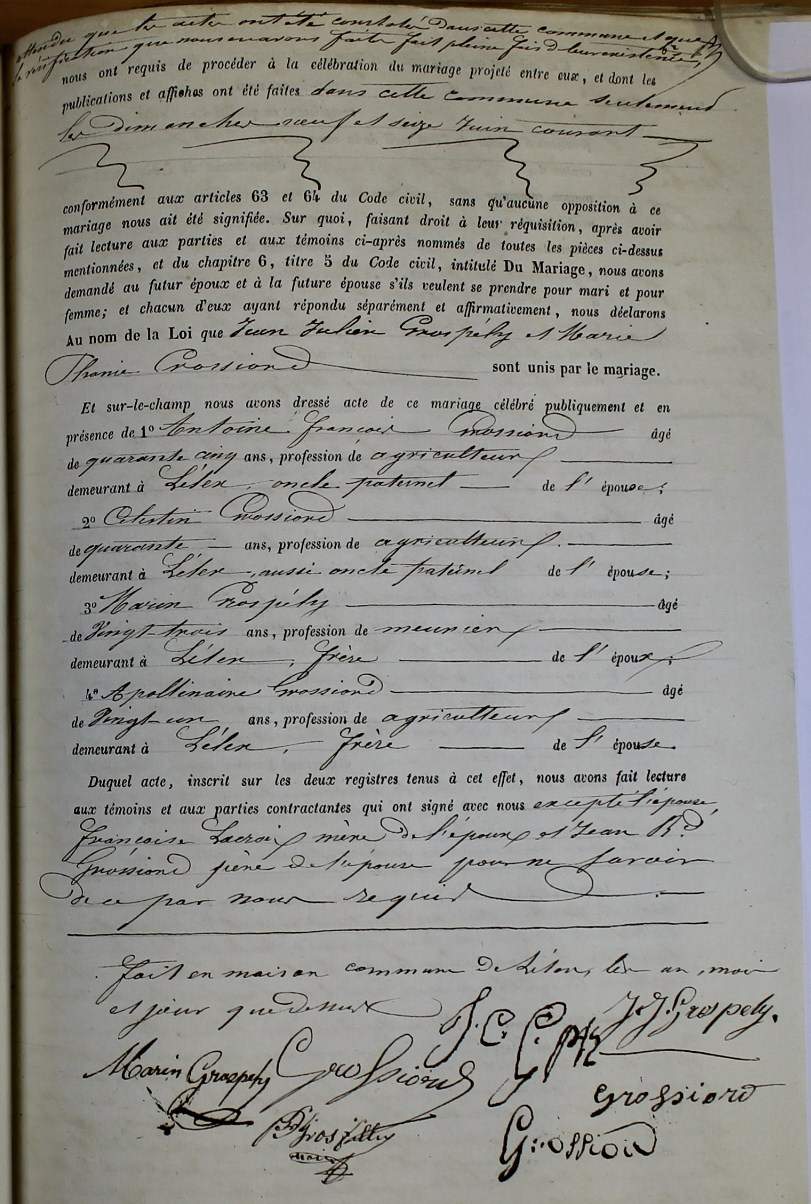 attendu que les actes ont été constatés dans cette commune et que
la vérification que nous en avons faite fait pleine foi de leur existence,
nous ont requis de procéder à la célébration du mariage projeté entre eux, et dont les
publications et affiches ont été faites dans cette commune seulement
les dimanches neuf et seize Juin courant
conformément aux articles 63 et 64 du Code civil, sans qu'aucune opposition à ce
mariage nous ait été signifiée. Sur quoi, faisant droit à leur réquisition, après avoir
fait lecture aux parties et aux témoins ci-après nommés de toutes les pièces ci-dessus
mentionnées, et du chapitre 6, titre 5 du Code civil, intitulé Du Mariage, nous avons
demandé au futur époux et à la future épouse s'ils veulent se prendre pour mari et pour
femme; et chacun d'eux ayant répondu séparément et affirmativement, nous déclarons
Au nom de la Loi que Jean Julien Grospély et Marie
Phanie Grossiord sont unis par le mariage.
Et sur-le-champ nous avons dressé acte de ce mariage célébré publiquement et en
présence de 1º Antoine François Grossiord âgé
de quarante cinq ans, profession de agriculteur
demeurant à Lélex, oncle paternel de l'épouse;
2º Célestin Grossiord âgé
de quarante ans, profession de agriculteur
demeurant à Lélex, aussi oncle paternel de l'épouse;
3º Marin Grospély âgé
de Vingt trois ans, profession de meunier
demeurant à Lélex, frère de l'époux;
4º Apollinaire Grossiord âgé
de Vingt-un ans, profession de agriculteur
demeurant à Lélex, frère de l'épouse
Duquel acte, inscrit sur les deux registres tenus à cet effet, nous avons fait lecture
aux témoins et aux parties contractantes qui ont signé avec nous excepté l'épouse,
Françoise Lacroix mère de l'époux et Jean
Grossiord père de l'épouse pour ne savoir
de ce par nous requis
Fait en maison commune de Lélex, les an, mois
et jour que dessus
J. J. Grospely.
Marin Grospely Grossiord
grossiord
Grossiord